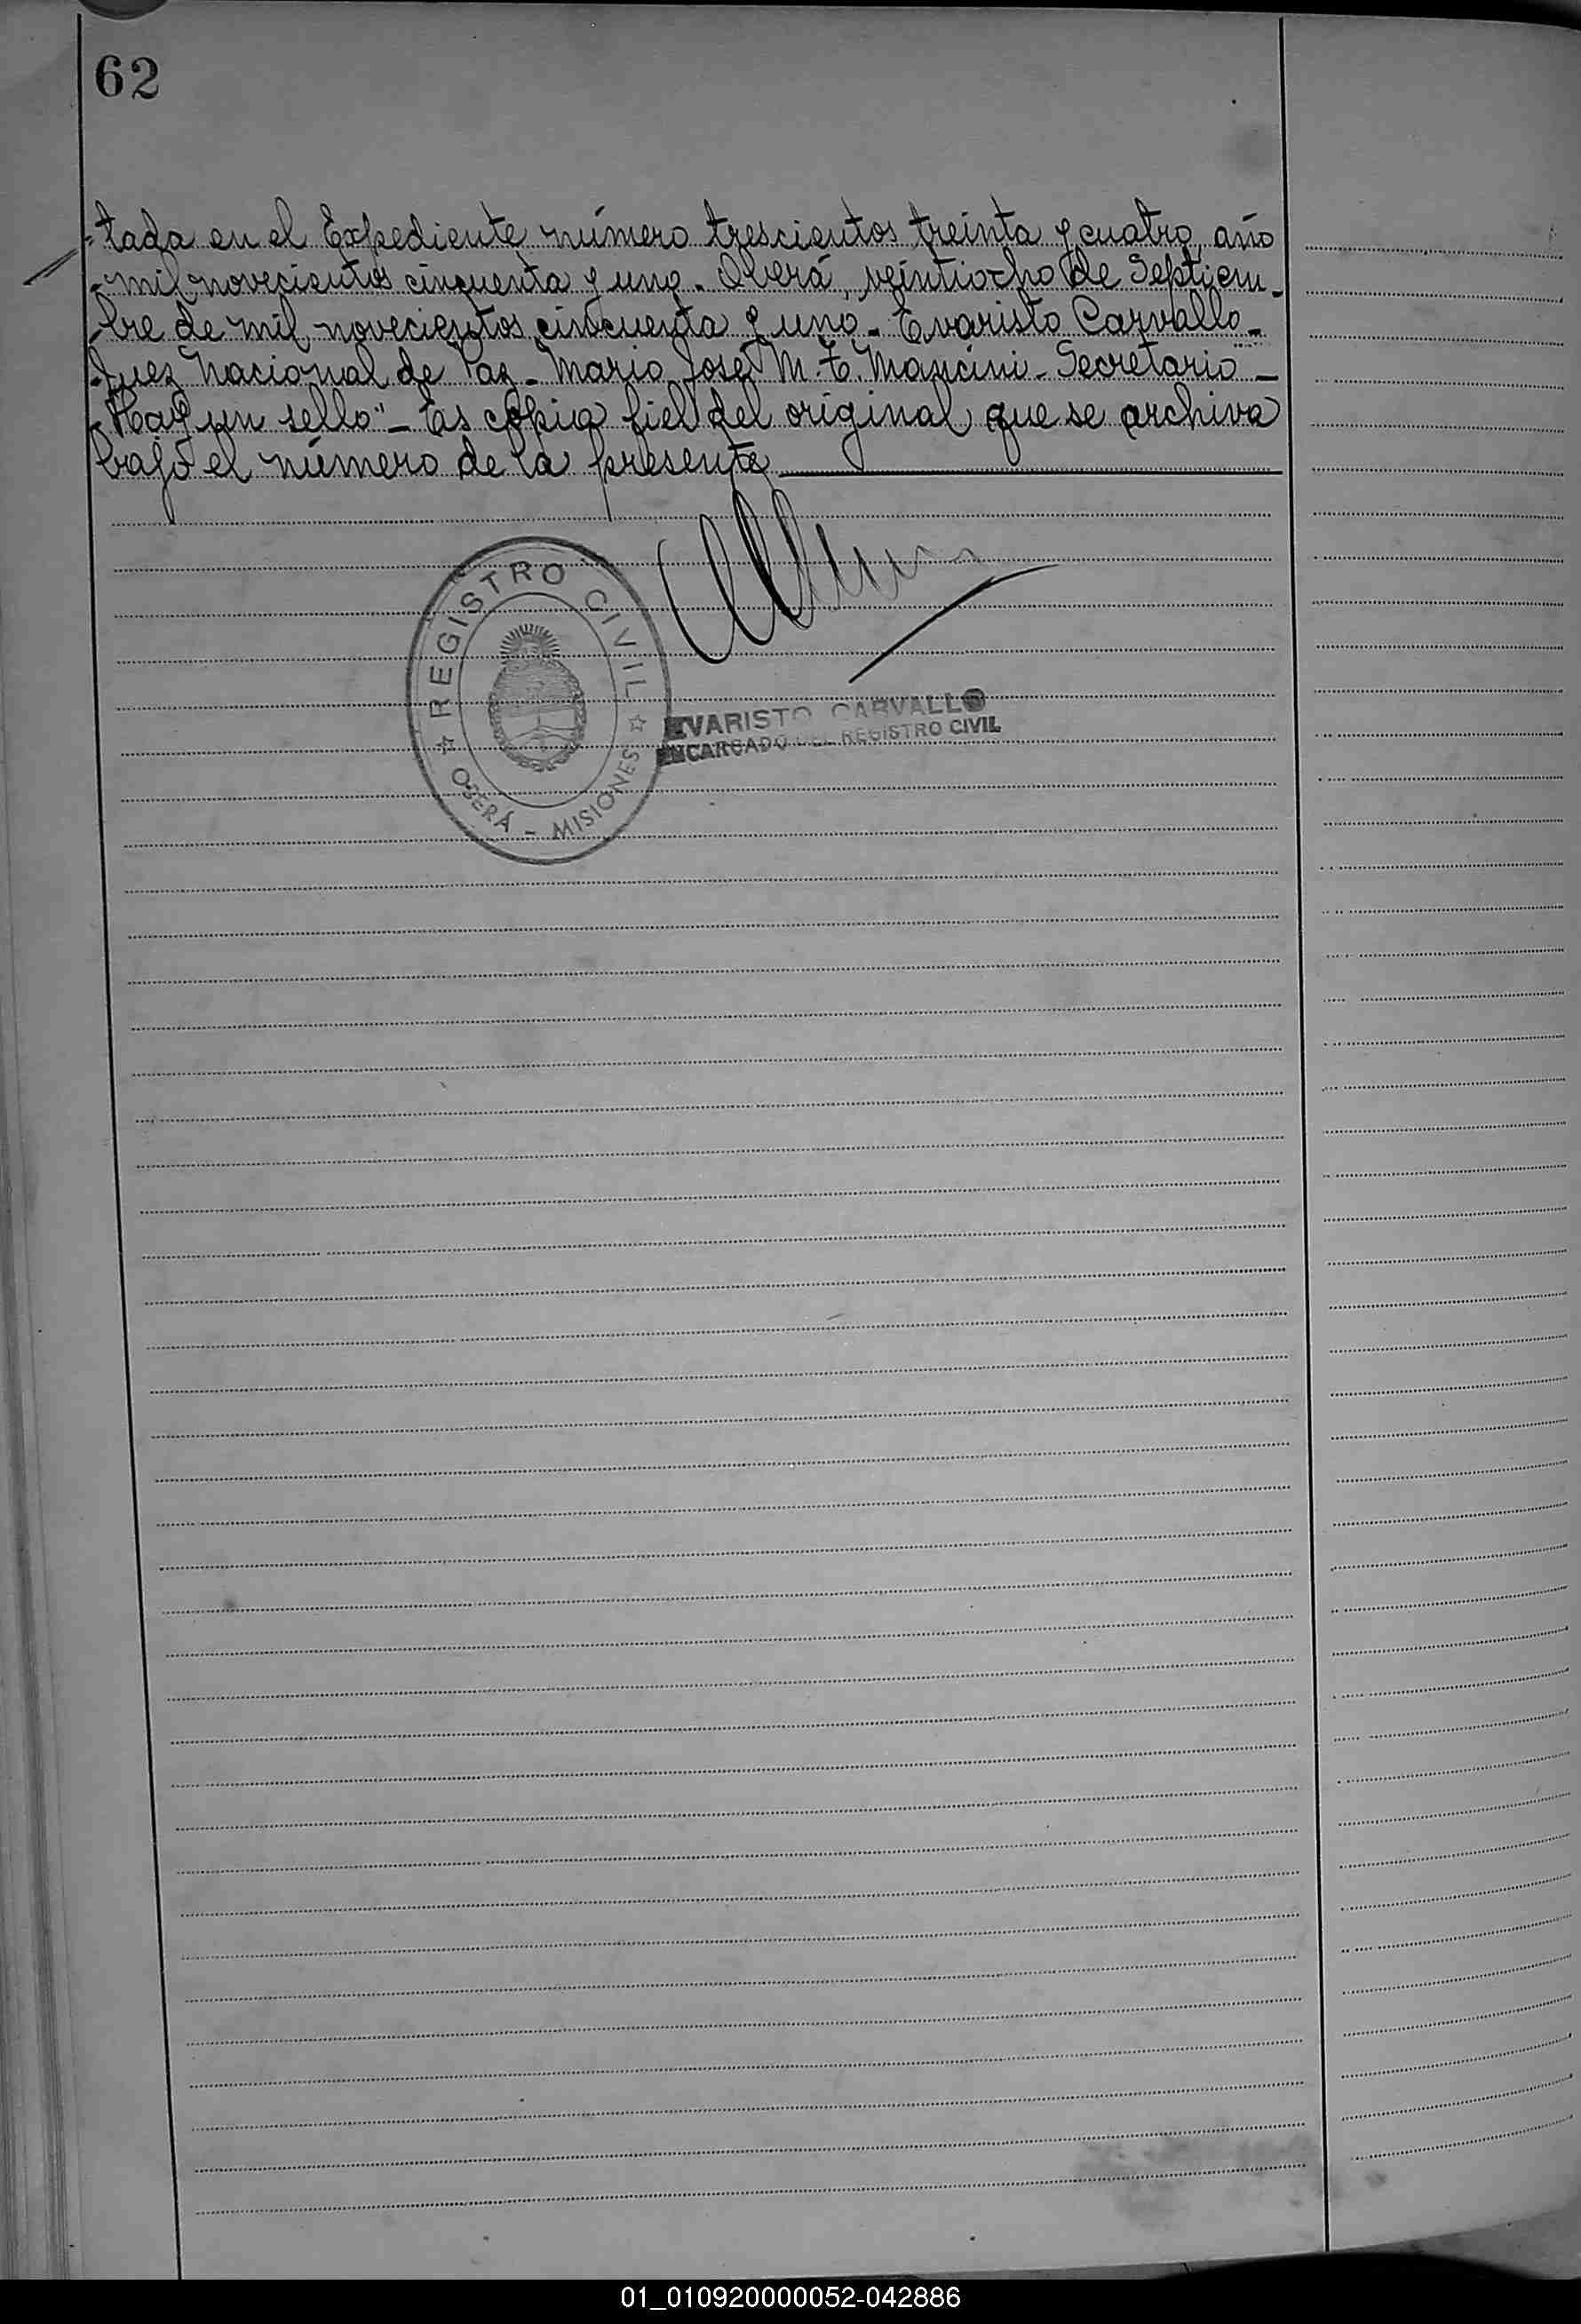 62
-tada en el Expediente número trescientos treinta y cuatro, año
- mil novecientos cincuenta y uno. Oberá, veintiocho de Septiem-
-bre de mil novecientos cincuenta y uno - Evaristo Carvallo -
-Juez Nacional de Paz - Mario José M. T. Mancini - Secretario -
- Hay un sello" - Es copia fiel del original que se archiva
bajo el número de la presente
REGISTRO CIVIL
OBERÁ - MISIONES
EVARISTO CARVALLO
ENCARGADO DEL REGISTRO CIVIL
01_010920000052-042886